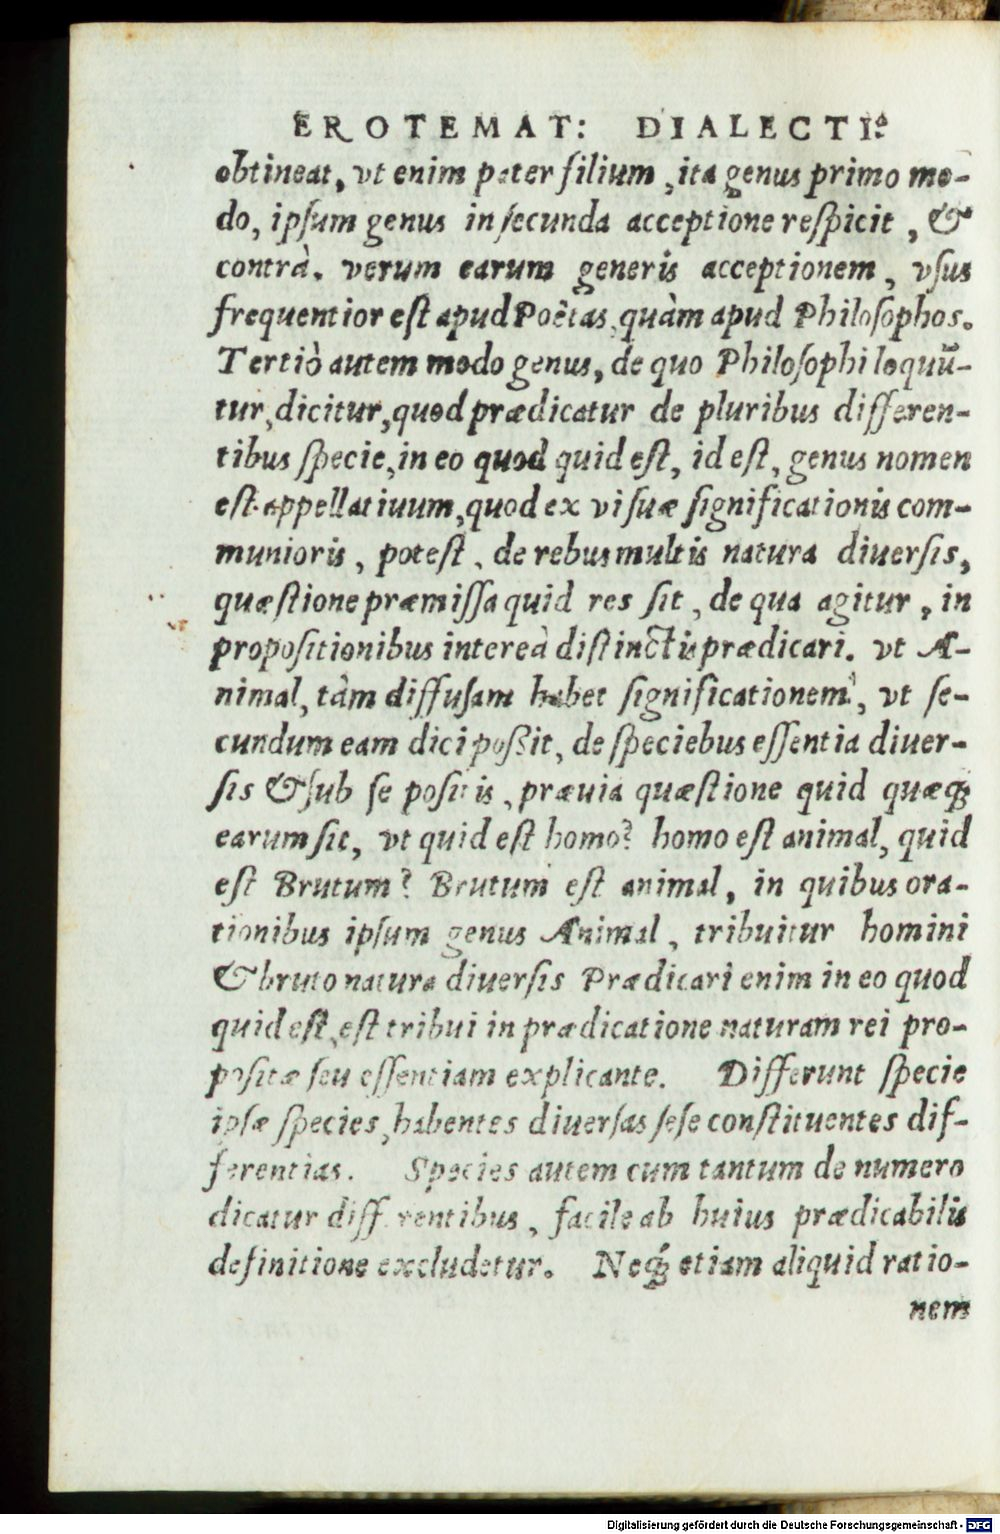 EROTEMAT: DIALECTI:
obtineat, vt enim pater filium, ita genus primo mo-
do, ipſum genus in ſecunda acceptione reſpicit, &
contrà. verum earum generis acceptionem, vſus
frequentior eſt apud Poëtas, quàm apud Philoſophos.
Tertiò autem modo genus, de quo Philoſophi loquū-
tur, dicitur, quod prædicatur de pluribus differen-
tibus ſpecie, in eo quod quid eſt, id eſt, genus nomen
eſt appellatiuum, quod ex vi ſuæ ſignificationis com-
munioris, poteſt, de rebus multis natura diuerſis,
quæſtione præmiſſa quid res ſit, de qua agitur, in
propoſitionibus intereà diſtinctis prædicari. vt A-
nimal, tàm diffuſam habet ſignificationem, vt ſe-
cundum eam dici poſsit, de ſpeciebus eſſentia diuer-
ſis & ſub ſe poſitis, præuia quæſtione quid quæq;
earum ſit, vt quid eſt homo? homo eſt animal, quid
eſt Brutum? Brutum eſt animal, in quibus ora-
tionibus ipſum genus Animal, tribuitur homini
& bruto natura diuerſis Prædicari enim in eo quod
quid eſt, eſt tribui in prædicatione naturam rei pro-
poſitæ ſeu eſſentiam explicante. Differunt ſpecie
ipſæ ſpecies, habentes diuerſas ſeſe conſtituentes dif-
ferentias. Species autem cum tantum de numero
dicatur differentibus, facile ab huius prædicabilis
definitione excludetur. Neq́; etiam aliquid ratio-
nem
Digitalisierung gefördert durch die Deutsche Forschungsgemeinschaft - DFG